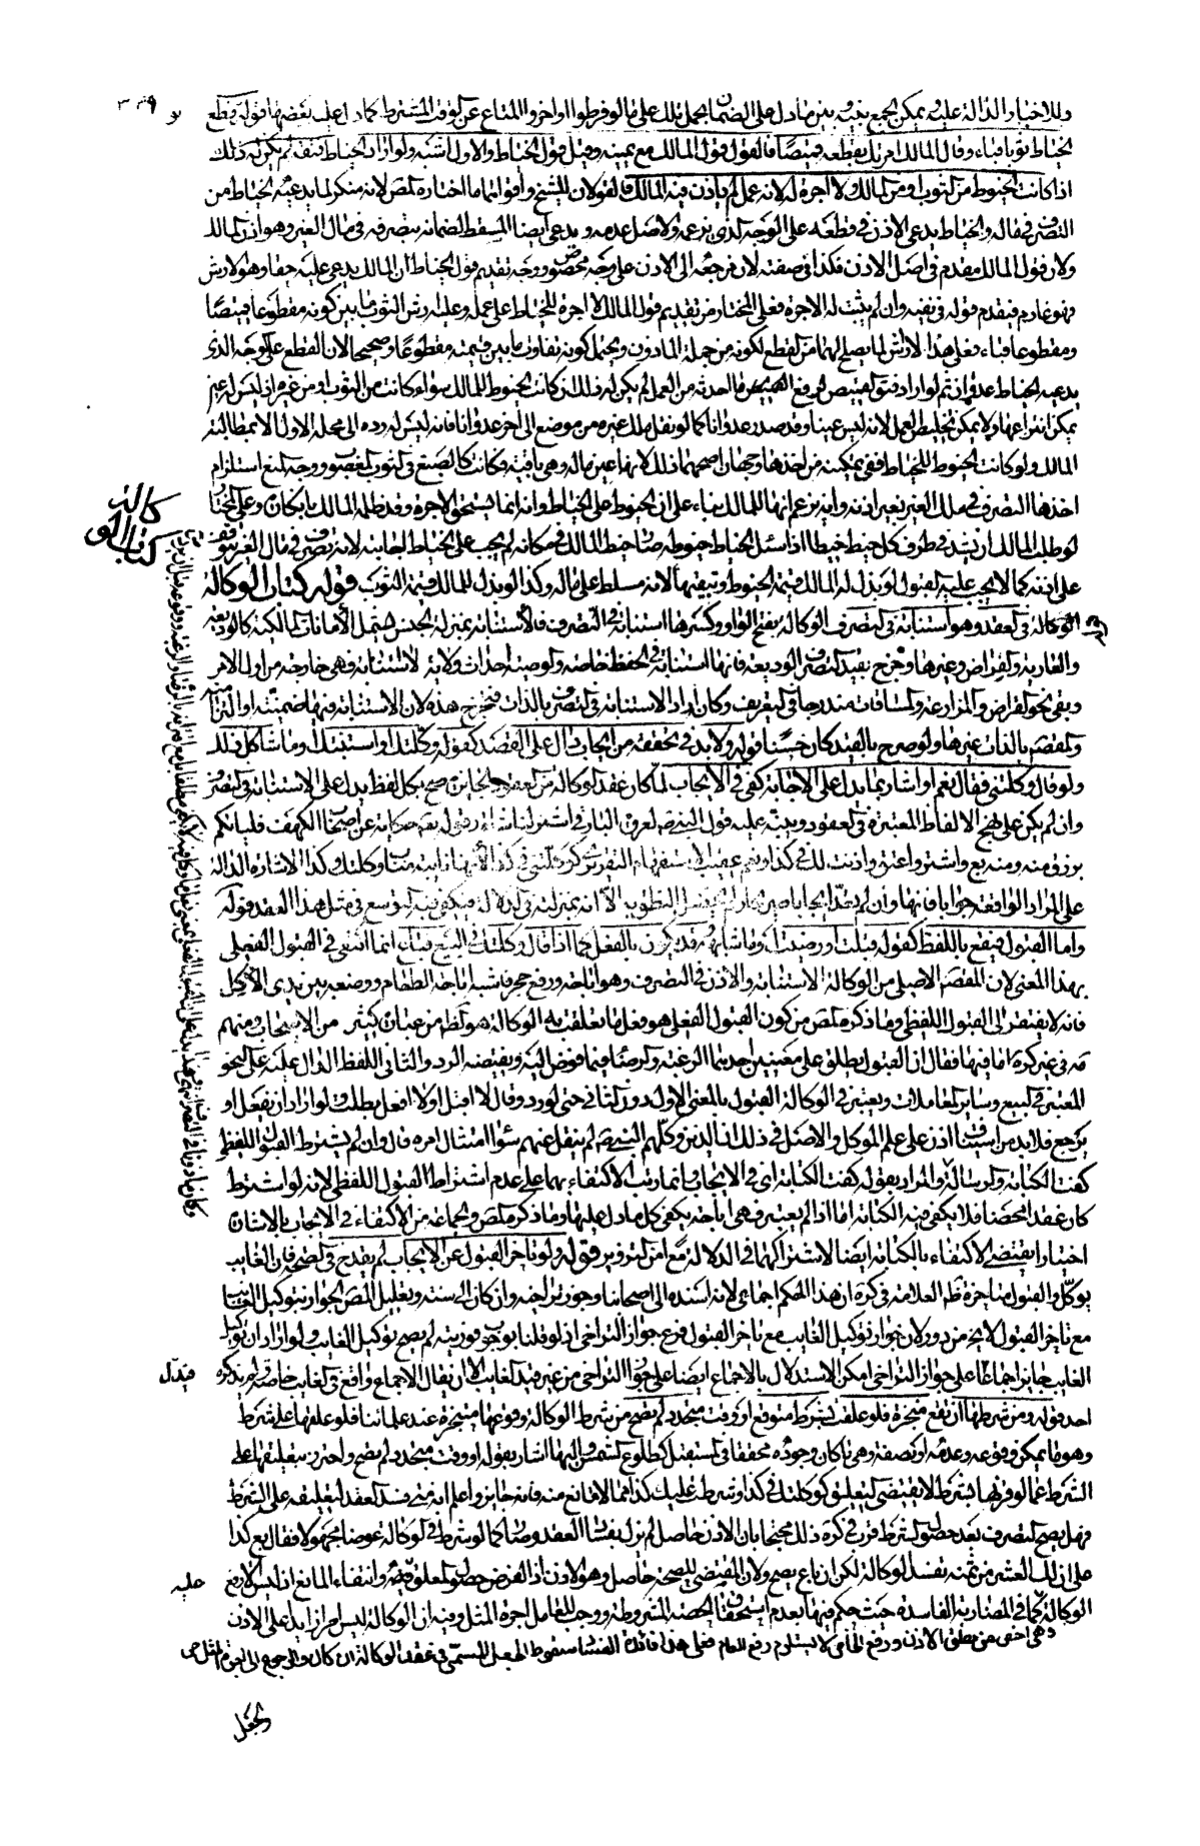 وللاخبار الدالة عليه ويمكن الجمع بينه وبين ما دل على الضمان بحمل تلك على ما لو فرطوا او اخروا المتاع عن الوقت المشترط كما دل عليه بعضها قوله لو قطع
الخياط ثوبا قباء وقال المالك امرتك بقطعه قميصا فالقول قول المالك مع يمينه وقيل قول الخياط والاول اشبه ولو اراد الخياط فتقه لم يكن له ذلك
اذا كانت الخيوط من الثوب او من المالك ولا اجرة له لانه عمل لم ياذن فيه المالك القولان للشيخ واقواهما ما اختاره المص لانه منكر لما يدعيه الخياط من
التصرف في ماله والخياط يدعي الاذن في قطعه على الوجه الذي يزعمه والاصل عدمه ويدعي ايضا المسقط لضمانه بتصرفه في مال الغير وهو اذن المالك
ولان قول المالك مقدم في اصل الاذن فكذا في صفته لان مرجعه الى الاذن على وجه مخصوص ووجه تقديم قول الخياط ان المالك يدعي عليه حقا وهو الارش
فهو غارم فيقدم قوله في نفيه وان لم يثبت له الاجرة فعلى المختار من تقديم قول المالك لا اجرة للخياط على عمله وعليه ارش الثوب ما بين كونه مقطوعا قميصا
ومقطوعا قباء فعلى هذا لا ارش لما يصلح لهما من القطع لكونه من جملة الماذون ويحتمل كونه تفاوت ما بين قيمته مقطوعا وصحيحا لان القطع على الوجه الذي
يدعيه الخياط عدوان ثم لو اراد فتق القميص ليرفع ما احدثه من العمل لم يكن له ذلك ان كانت الخيوط للمالك سواء كانت من الثوب او من غيره اذ ليس له عين
يمكن انتزاعها ولا يمكن تخليص العمل لانه ليس عينا وقد صدر عدوانا كما لو نقل ملك غيره من موضع الى آخر عدوانا فانه ليس له رده الى محله الاول الا بمطالبة
المالك ولو كانت الخيوط للخياط ففي تمكينه من اخذها وجهان اصحهما ذلك لانها عين ماله وهي باقية وكانت كالصبغ في الثوب المغصوب ووجه المنع استلزام
اخذها التصرف في ملك الغير بغير اذنه وانه يزعم انها للمالك بناء على ان الخيوط على الخياط وانه انما يستحق الاجرة وقد ظلمه المالك بانكاره وعلى المختار
لو طلب المالك ان يشد في طرف كل خيط خيطا اذا سل الخياط خيوطه صار خيط المالك في مكانه لم يجب على الخياط اجابته لانه تصرف في مال الغير يتوقف
على اذنه كما لا يجب عليه القبول لو بذل له المالك قيمة الخيوط وتبقيتها لانه مسلط على ماله وكذا لو بذل للمالك قيمة الثوب قوله كتاب الوكالة
الوكالة في العقد وهو استنابة في التصرف الوكالة بفتح الواو وكسرها استنابة في التصرف فالاستنابة بمنزلة الجنس يشمل الأمانات المالكية كالوديعة
والعارية والقراض وغيرها وخرج بقيد التصرف الوديعة فانها استنابة في الحفظ خاصة والوصية احداث ولاية لا استنابة فهي خارجة من اول الامر
ويبقى نحو القراض والمزارعة والمساقات مندرجا في التعريف وكأن المراد الاستنابة في التصرف بالذات فتخرج هذه لان الاستنابة فيها ضمنية او التزامية
والمقصد بالذات غيرها ولو صرح بالقيد كان حسنا قوله ولا بد في تحققه من ايجاب دال على القصد كقوله وكلتك او استنبتك وما شاكل ذلك
ولو قال وكلتني فقال نعم او اشار بما يدل على الاجابة كفى في الايجاب لما كان عقد الوكالة من العقود الجايزة صح بكل لفظ يدل على الاستنابة في التصرف
وان لم يكن على نهج الالفاظ المعتبرة في العقود وينبه عليه قول النبي ص لعروة البارقي اشتر لنا شاة وقوله تعالى حكاية عن اصحاب الكهف فلياتكم
برزق منه ومنه بع واشتر واعتق واذنت لك في كذا ونعم عقيب الاستفهام التقريري كوكلتني في كذا لانها نايبة مناب وكلتك وكذا الاشارة الدالة
على المراد الواقعة جوابا فانها وان لم تعد ايجابا صريحا الا انه بمنزلته في الدلالة فيكفي فيه التوسع في مثل هذا العقد قوله
واما القبول فيقع باللفظ كقوله قبلت او رضيت وما شابهه وقد يكون بالفعل كما اذا قال وكلتك في البيع فباع انما اكتفي في القبول الفعلي
بهذا المعنى لان المقصد الاصلي من الوكالة الاستنابة والاذن في التصرف وهو اباحة ورفع حجر فاشبه اباحة الطعام ووضعه بين يدي الآكل
فانه لا يفتقر الى القبول اللفظي وما ذكره المص من كون القبول الفعلي هو فعل ما تعلقت به الوكالة هو الظ من عبارة كثير من الاصحاب ومنهم
مه في غير كرة اما فيها فقال ان القبول يطلق على معنيين احدهما الرغبة والرضا فيما فوض اليه ونقيضه الرد والثاني اللفظ الدال عليه على النحو
المعتبر في البيع وساير المعاملات ويعتبر في الوكالة القبول بالمعنى الاول دون الثاني حتى لو رد وقال لا اقبل او لا افعل بطلت ولو اراد ان يفعل او
يرجع فلا بد من استيناف اذن على علم الموكل والاصل في ذلك ان الذين وكلهم النبي ص لم ينقل عنهم سوا امتثال امره قال وان لم يشترط القبول اللفظي
كفت الكتابة والرسالة والمراد بقوله كفت الكتابة اي في الايجاب وانما رتب الاكتفاء بهما على عدم اشتراط القبول اللفظي لانه لو اشترط
كان عقدا محضا فلا يكفي فيه الكتابة اما اذا لم يعتبر فهي اباحة يكفي كل ما دل عليها وما ذكره المص والجماعة من الاكتفاء في الايجاب بالاشارة
اختيارا يقتضي الاكتفاء بالكتابة ايضا لاشتراكهما في الدلالة مع امن التزوير قوله ولو تاخر القبول عن الايجاب لم يقدح في الصحة فان الغايب
يوكل والقبول متاخر ظ العلامة في كرة ان هذا الحكم اجماعي لانه اسنده الى اصحابنا وجوز تراخيه وان كان الى سنة وتعليل المص الجواز بتوكيل الغايب
مع تاخر القبول لا يخ من دور لان جواز توكيل الغايب مع تاخر القبول فرع جواز التراخي اذ لو قلنا بوجوب فوريته لم يصح توكيل الغايب ولو اراد ان توكيل
الغايب جايز اجماعا على جواز التراخي امكن الاستدلال بالاجماع ايضا على جواز التراخي من غير قيد الغايب الا ان يقال الاجماع واقع في الغايب خاصة ولم يذكره
احد قوله ومن شرطها ان تقع منجزة فلو علقت بشرط متوقع او وقت متجدد لم يصح من شرط الوكالة وقوعها منجزة عند علمائنا فلو علقها على شرط
وهو ما يمكن وقوعه وعدمه او صفة وهي ما كان وجوده محققا في المستقبل كطلوع الشمس واليها اشار بقوله او وقت متجدد لم يصح واحترز بتعليقها على
الشرط عما لو قرنها بشرط لا يقتضي التعليق كوكلتك في كذا وشرطت عليك كذا مما لا مانع منه فانه جايز واعلم انه متى فسد العقد لتعليقه على الشرط
فهل يصح التصرف بعد حصول الشرط قرب في كرة ذلك محتجا بان الاذن حاصل لم يزل بفساد العقد وصار كما لو شرط في الوكالة عوضا مجهولا فقال بع كذا
على ان لك العشر من ثمنه تفسد الوكالة لكن ان باع يصح ولان المقتضي للصحة حاصل وهو الاذن اذ الفرض حصول المعلق عليه وانتفاء المانع اذ ليس الا رفع
الوكالة وكما في المضاربة الفاسدة حيث حكم فيها بعدم استحقاق الحصة المشروطة ووجب للعامل اجرة المثل وفيه ان الوكالة ليس امرا زايدا على الاذن
وهي اخص من مطلق الاذن ورفع الخاص لا يستلزم رفع العام فعلى هذا فائدة الفساد سقوط الجعل المسمى في عقد الوكالة ان كان والرجوع الى اجرة المثل
الجعل
كتاب الوكالة